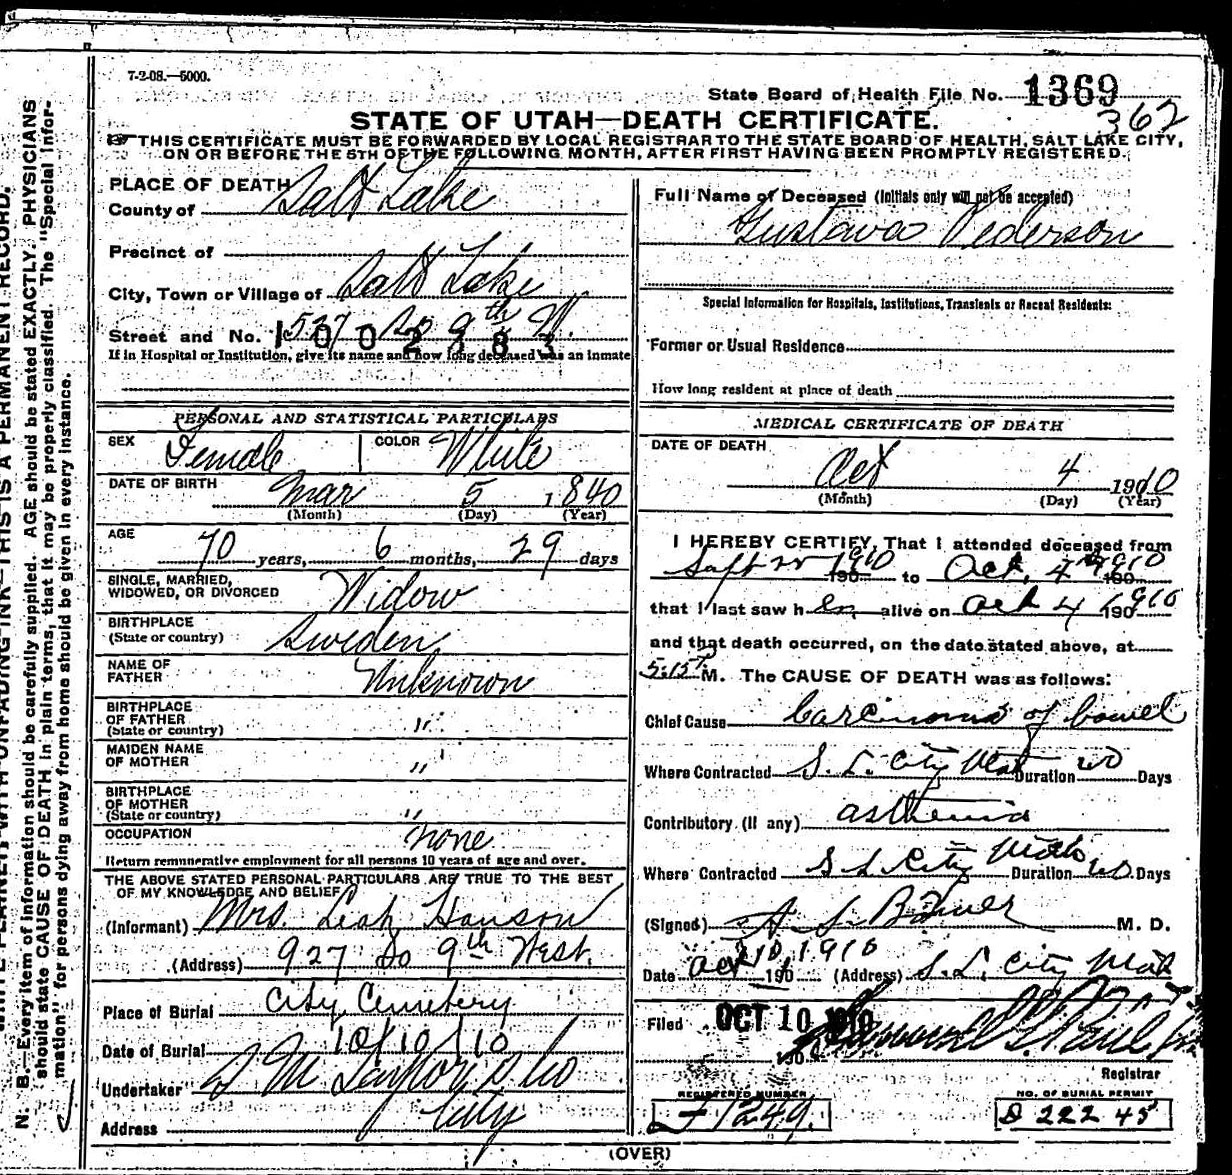 7-2-08.—5000.
State Board of Health File No. 1369
362
STATE OF UTAH—DEATH CERTIFICATE.
THIS CERTIFICATE MUST BE FORWARDED BY LOCAL REGISTRAR TO THE STATE BOARD OF HEALTH, SALT LAKE CITY,
ON OR BEFORE THE 5TH OF THE FOLLOWING MONTH, AFTER FIRST HAVING BEEN PROMPTLY REGISTERED.
N. B.—Every item of information should be carefully supplied. AGE should be stated EXACTLY. PHYSICIANS
should state CAUSE OF DEATH in plain terms, that it may be properly classified. The "Special Infor-
mation" for persons dying away from home should be given in every instance.
PLACE OF DEATH
County of Salt Lake
Precinct of
City, Town or Village of Salt Lake
Street and No. 527 So 9th W.
1002283
If in Hospital or Institution, give its name and how long deceased was an inmate
PERSONAL AND STATISTICAL PARTICULARS
SEX Female COLOR White
DATE OF BIRTH Mar 5 1840
(Month) (Day) (Year)
AGE 70 years, 6 months, 29 days
SINGLE, MARRIED,
WIDOWED, OR DIVORCED Widow
BIRTHPLACE
(State or country) Sweden
NAME OF
FATHER Unknown
BIRTHPLACE
OF FATHER
(State or country) "
MAIDEN NAME
OF MOTHER "
BIRTHPLACE
OF MOTHER
(State or country) "
OCCUPATION none
Return remunerative employment for all persons 10 years of age and over.
THE ABOVE STATED PERSONAL PARTICULARS ARE TRUE TO THE BEST
OF MY KNOWLEDGE AND BELIEF
(Informant) Mrs. Leah Hanson
(Address) 927 So 9th West.
Place of Burial City Cemetery
Date of Burial 10/10/10
Undertaker S M Taylor & Co
Address City
Full Name of Deceased (Initials only will not be accepted)
Gustava Pederson
Special Information for Hospitals, Institutions, Transients or Recent Residents:
Former or Usual Residence
How long resident at place of death
MEDICAL CERTIFICATE OF DEATH
DATE OF DEATH
Oct 4 1910
(Month) (Day) (Year)
I HEREBY CERTIFY, That I attended deceased from
Sept 1910 to Oct. 4 1910
that I last saw her alive on Oct 4 1910
and that death occurred, on the date stated above, at
5:15 M. The CAUSE OF DEATH was as follows:
Chief Cause Carcinoma of bowel
Where Contracted S. L. City Utah Duration Days
Contributory (If any) asthenia
Where Contracted S L City Utah Duration Days
(Signed) M. D.
Date Oct 1910 (Address) S. L. City Utah
Filed OCT 10 1910
Registrar
REGISTERED NUMBER
F 1249.
NO. OF BURIAL PERMIT
D 22245
(OVER)